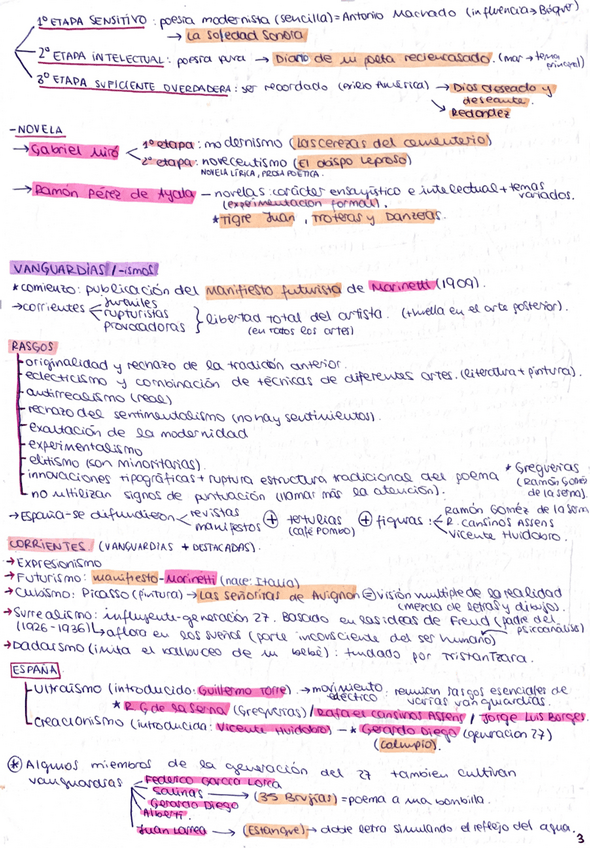 1º ETAPA SENSITIVO: poesía modernista (sencilla) = Antonio Machado (influencia → Bcquer)
→ La Soledad Sonora
2º ETAPA INTELECTUAL: poesía pura → Diario de un poeta reciencasado. (mar → tema principal)
3º ETAPA SUFICIENTE OVERDADERA: ser recordado (exilio América) → Dios deseado y deseante.
↘ Redondez
-NOVELA
→ Gabriel Miró
1º etapa: modernismo (Las cerezas del cementerio)
2º etapa: novecentismo (El obispo leproso)
NOVELA LÍRICA, PROSA POÉTICA.
→ Ramón Pérez de Ayala — novelas: carácter ensayístico e intelectual + temas variados.
(experimentación formal).
* Tigre Juan, Troteras y Danzeras.
VANGUARDIAS / -ismos
* comienzo: publicación del manifiesto futurista de Marinetti (1909).
→ corrientes
juveniles
rupturistas
provocadoras
} libertad total del artista. (+huella en el arte posterior).
(en todos los artes)
RASGOS
- originalidad y rechazo de la tradición anterior.
- eclecticismo y combinación de técnicas de diferentes artes. (literatura + pintura).
- antirrealismo (real)
- rechazo del sentimentalismo (no hay sentimientos).
- exaltación de la modernidad
- experimentalismo
- elitismo (son minoritarias).
- innovaciones tipográficas + ruptura estructura tradicional del poema
- no utilizan signos de puntuación (llamar más la atención).
* Greguerías
(Ramón Goméz de la serna).
→ España - se difundieron
revistas
manifestos
⊕ tertulias
(café Pombo)
⊕ figuras:
Ramón Goméz de la Sern
R. cansinos Assens
Vicente Huidobro.
CORRIENTES (VANGUARDIAS + DESTACADAS).
→ Expresionismo
→ Futurismo: manifiesto - Marinetti (nace: Italia)
→ Cubismo: Picasso (pintura) → Las señoritas de Avignon = visión multiple de la realidad
(mezcla de letras y dibujos).
→ Surrealismo: influyente - generación 27. Basado en las ideas de Freud (padre del psicoanálisis)
(1926-1936) ↳ aflora en los sueños (parte inconsciente del ser humano)
→ Dadaísmo (imita el balbuceo de un bebé): fundado por Tristan Tzara.
ESPAÑA
- Ultraísmo (introducido: Guillermo Torre). → movimiento ecléctico: reunían rasgos esenciales de varias vanguardias.
* R.G de la Serna (Greguerías) / Rafael cansinos Assens / Jorge Luis Borges.
- Creacionismo (introducida: Vicente Huidobro) — * Gerardo Diego (generación 27)
(columpio).
* Algunos miembros de la generación del 27 también cultivan
vanguardias
Federico García Lorca
Salinas → (35 Bujías) = poema a una bombilla.
Gerardo Diego
Alberti
Juan Larrea → (Estanque) → doble letra simulando el reflejo del agua.
3